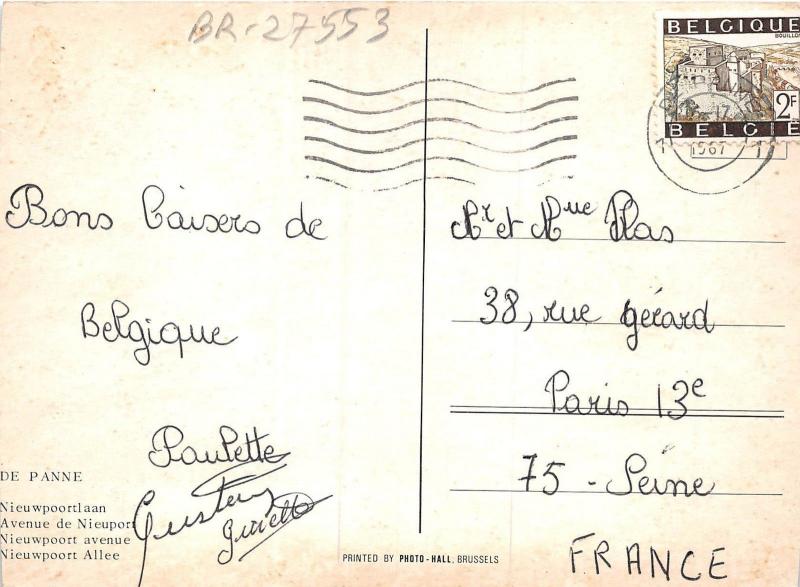 BR-27553
BELGIQUE
BOUILLON
2F
BELGIË
1967
Bons Baisers de
Belgique
Paulette
Gustave
DE PANNE
Nieuwpoortlaan
Avenue de Nieuport
Nieuwpoort avenue
Nieuwpoort Allee
PRINTED BY PHOTO-HALL, BRUSSELS
Mr et Mme Plas
38, rue gérard
Paris 13e
75 - Seine
FRANCE